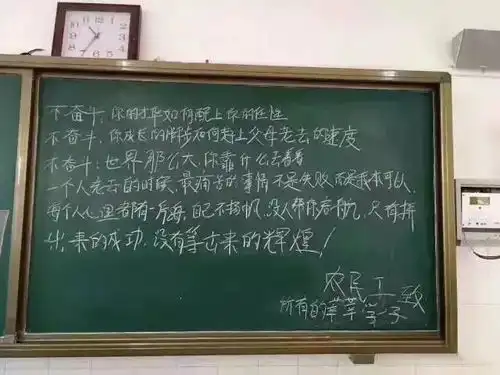 不奋斗,你的才华如何配上你的任性
不奋斗,你成长的脚步如何赶上父母老去的速度
不奋斗:世界那么大你靠什么去看看
一个人老去的时候,最痛苦的事情不是失败而是我本可以,
每个人心里都有一片海,自己不扬帆,没人帮你启航,只有拼
出来的成功,没有等出来的辉煌!
农民工致
所有的莘莘学子